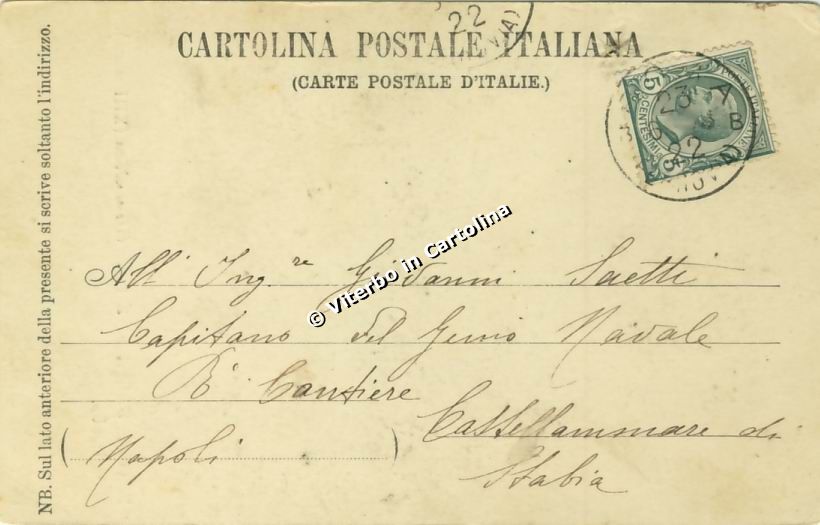 CARTOLINA POSTALE ITALIANA
(CARTE POSTALE D'ITALIE.)
NB. Sul lato anteriore della presente si scrive soltanto l'indirizzo.
22
5 CENTESIMI 5
23
22
© Viterbo in Cartolina
All' Ing.re Giovanni Saetti
Capitano del Genio Navale
R° Cantiere
Castellammare di
Stabia
(Napoli)